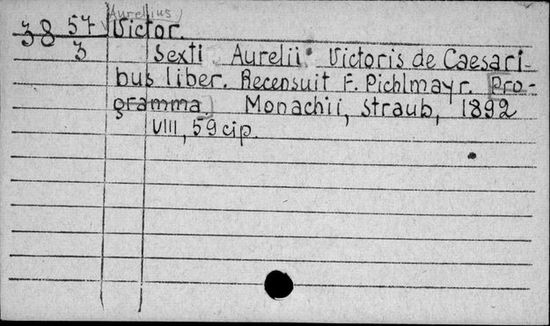 Aurelius
38 57 Victor.
3 Sexti Aurelii Victoris de Caesari-
bus liber. Recensuit F. Pichlmayr. [Pro-
gramma] Monachii, Straub, 1892
VIII, 59 cip.